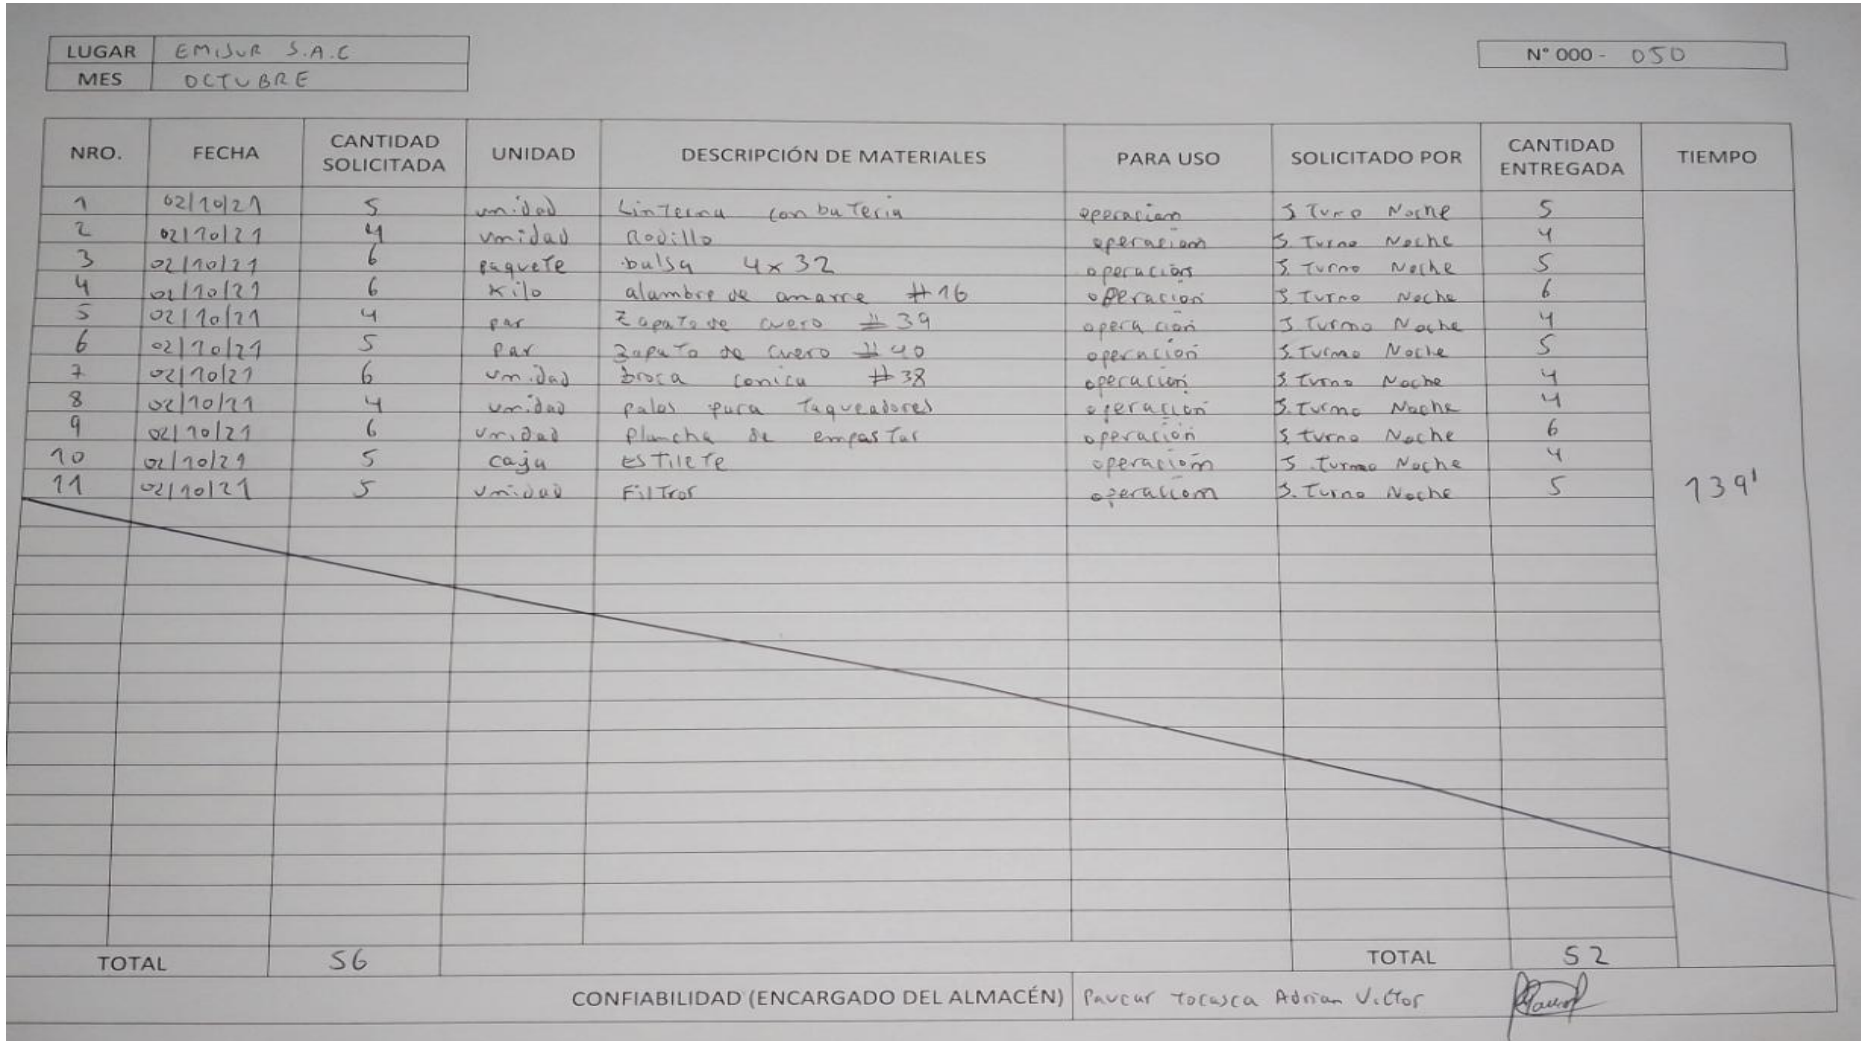 LUGAR EMISUR S.A.C
N° 000 - 050
MES OCTUBRE
NRO. FECHA CANTIDAD SOLICITADA UNIDAD DESCRIPCIÓN DE MATERIALES PARA USO SOLICITADO POR CANTIDAD ENTREGADA TIEMPO
1 02/10/21 5 unidad Linterna con bateria operacion S. Turno Noche 5
2 02/10/21 4 unidad Rodillo operacion S. Turno Noche 4
3 02/10/21 6 paquete bolsa 4x32 operación S. Turno Noche 5
4 02/10/21 6 Kilo alambre de amarre #16 operacion S. Turno Noche 6
5 02/10/21 4 par Zapato de cuero #39 operacion S. Turno Noche 4
6 02/10/21 5 par Zapato de cuero #40 operación S. Turno Noche 5
7 02/10/21 6 unidad broca conica #38 operación S. Turno Noche 4
8 02/10/21 4 unidad palos para Taqueadores operación S. Turno Noche 4
9 02/10/21 6 unidad plancha de empastar operación S. turno Noche 6
10 02/10/21 5 caja ESTileTe operación S. Turno Noche 4
11 02/10/21 5 unidad FilTros operaccion S. Turno Noche 5 139'
TOTAL 56 TOTAL 52
CONFIABILIDAD (ENCARGADO DEL ALMACÉN) Paucar Tocasca Adrian Victor